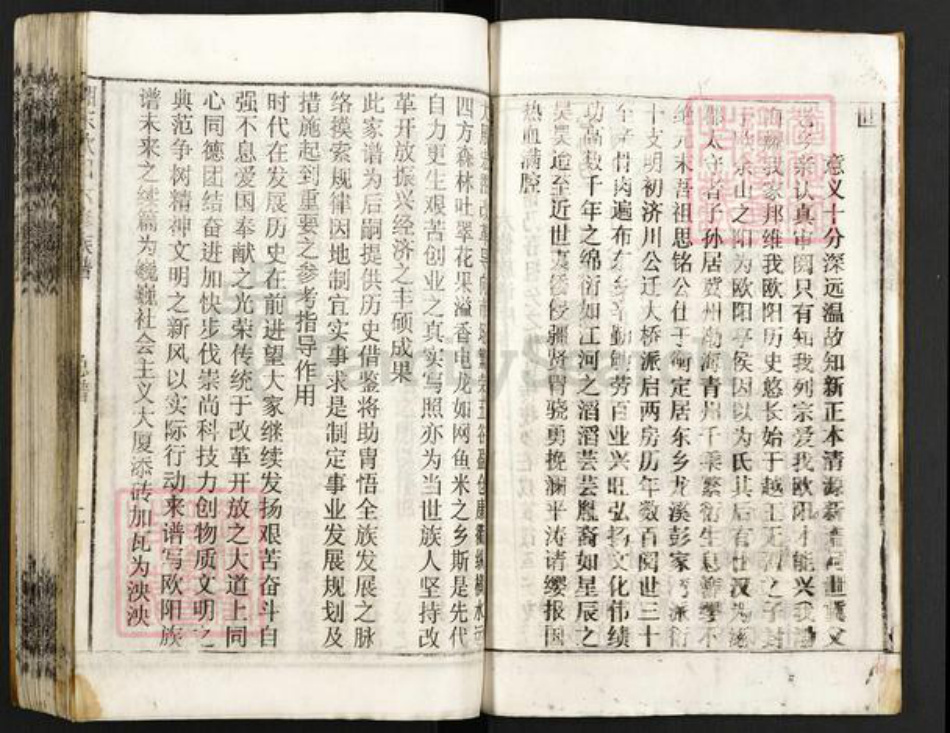 世
意义十分深远温故知新正本清源新
亲认真审阅只有知我列宗爱我欧阳才能兴我
我家邦维我欧阳历史悠长始于越王无 之子封
余山之阳为欧阳亭侯因以为氏其后有仕汉为涿
太守者子孙居冀州渤海青州千乘繁衍生息簪缨不
绝元末吾祖思铭公仕于衡定居东乡龙溪彭家 派衍
十支明初济川公迁大桥派启两房历年数百阅世三十
遍布东乡辛勤 劳百业兴旺弘扬文化伟绩
功高数千年之绵衍如江河之滔滔芸芸胤裔如星辰之
昊昊迨至近世 侵疆贤胄骁勇挽澜平涛请缨报国
热血满腔
四方森林吐翠花果溢香电龙如网鱼米之乡斯是先代
自力更生艰苦创业之真实写照亦为当世族人坚持改
革开放振兴经济之丰硕成果
此家谱为后嗣提供历史借鉴将助胄悟全族发展之脉
络摸索规律因地制宜实事求是制定事业发展规划及
措施起到重要之参考指导作用
时代在发展历史在前进望大家继续发扬艰苦奋斗自
强不息爱国奉献之光荣传统于改革开放之大道上同
心同德团结奋进加快步伐崇尚科技力创物质文明之
典范争树精神文明之新风以实际行动来谱写欧阳族
谱未来之续篇为巍巍社会主义大厦添砖加瓦为泱泱